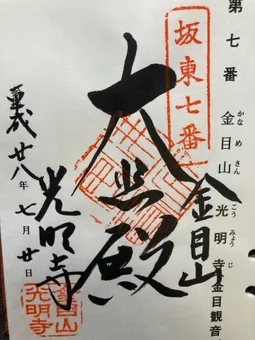 第七番 金目山 光明寺 金目観音
かなめさん
こうみょうじ
坂東七番
金目山
大悲殿
光明寺
平成廿八年七月廿日
金目山
光明寺